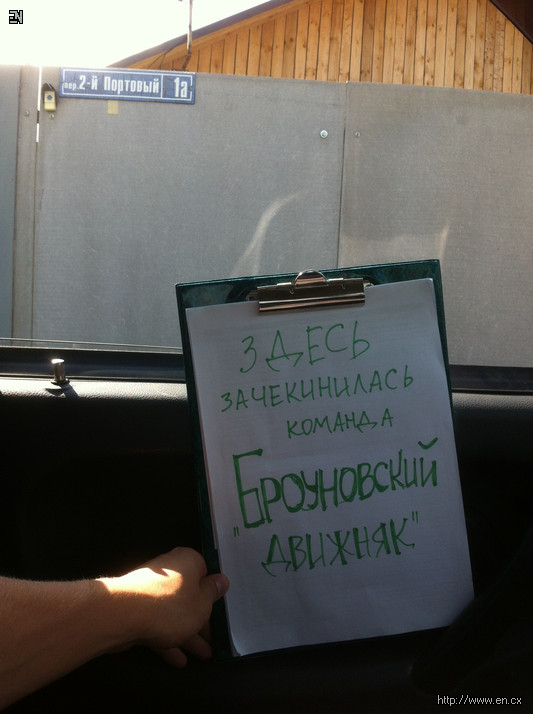 EN
пер. 2-й Портовый 1а
ЗДЕСЬ
ЗАЧЕКИНИЛАСЬ
КОМАНДА
"БРОУНОВСКИЙ
ДВИЖНЯК"
http://www.en.cx